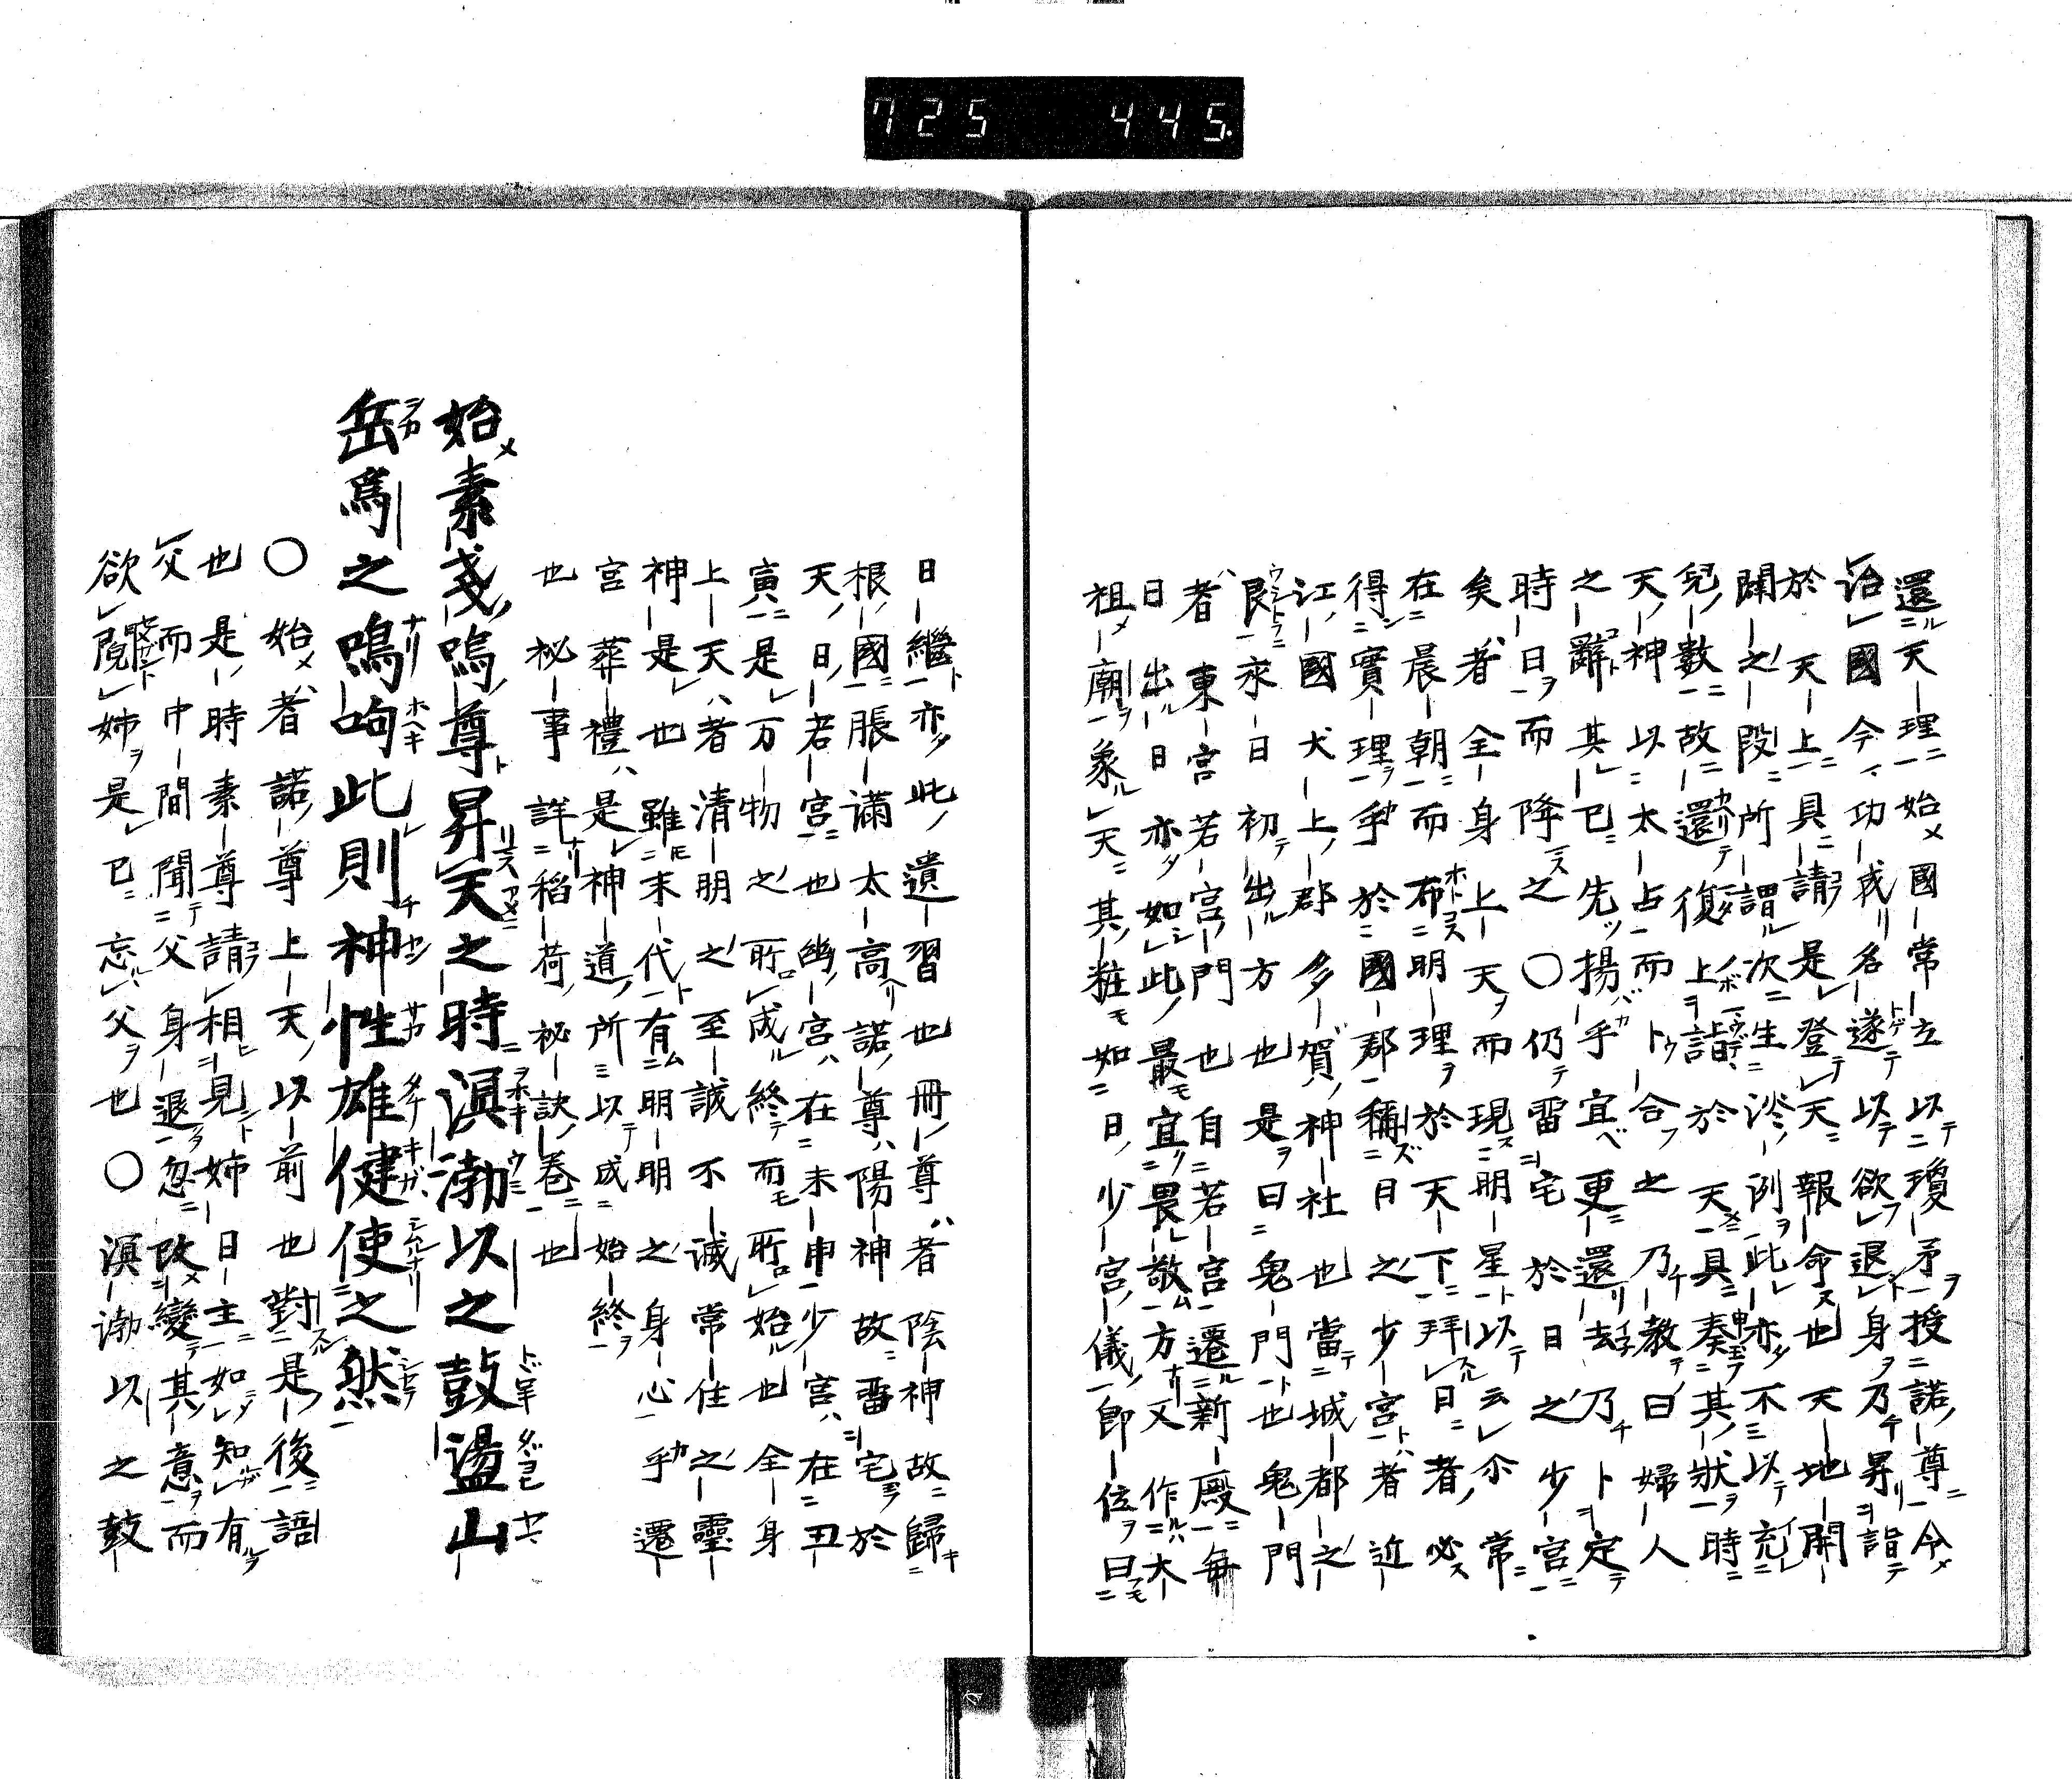 725 445.
還天理始國常立以瓊矛授諾尊今
治國今功成名遂以欲退身乃昇詣
於天上具請是登天報命也天地開
闢之段所謂次生淡例此亦不以充
兒數故還復上詣於天具奏其狀時
天神以太占而卜合之乃教曰婦人
之辭其已先揚乎宜更還去乃卜定
時日而降之〇仍留宅於日之少宮
矣者全身上天而現明星以云尒常
在晨朝而布明理於天下拜日者必
得實理乎於國郡稱日之少宮者近
江國犬上郡多賀神社也當城都之
艮永日初出方也是曰鬼門也鬼門
者東宮若宮門也自若宮遷新殿每
日出日亦如此最宜畏敬方又作大
祖廟象天其粧如日少宮儀即位曰
日繼亦此遺習也冊尊者陰神故歸
根國脹滿太高諾尊陽神故留宅於
天日若宮也幽宮在未申少宮在丑
寅是万物之所成終而所始也全身
上天者清明之至誠不誠常住之靈
神是也雖末代有明明之身心乎遷
宮葬禮是神道所以成始終
也秘事詳稲荷秘訣卷也
始素戔嗚尊昇天之時溟渤以之鼓盪山
岳爲之鳴呴此則神性雄健使之然
〇始者諾尊上天以前也對是後語
也是時素尊請相見姉日主如知有
父而中間聞父身退忽改變其意而
欲䰟姉是已忘父也〇溟渤以之鼓